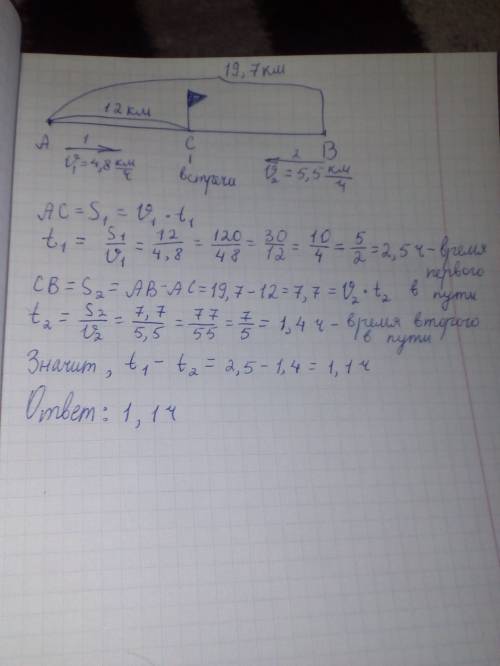 19,7 км
12 км
A 1 C 2 B
v₁=4,8 км/ч встречи v₂=5,5 км/ч
AC = S₁ = v₁ · t₁
t₁ = S₁/v₁ = 12/4,8 = 120/48 = 30/12 = 10/4 = 5/2 = 2,5 ч - время первого в пути
CB = S₂ = AB - AC = 19,7 - 12 = 7,7 = v₂ · t₂
t₂ = S₂/v₂ = 7,7/5,5 = 77/55 = 7/5 = 1,4 ч - время второго в пути
Значит, t₁ - t₂ = 2,5 - 1,4 = 1,1 ч
Ответ: 1,1 ч